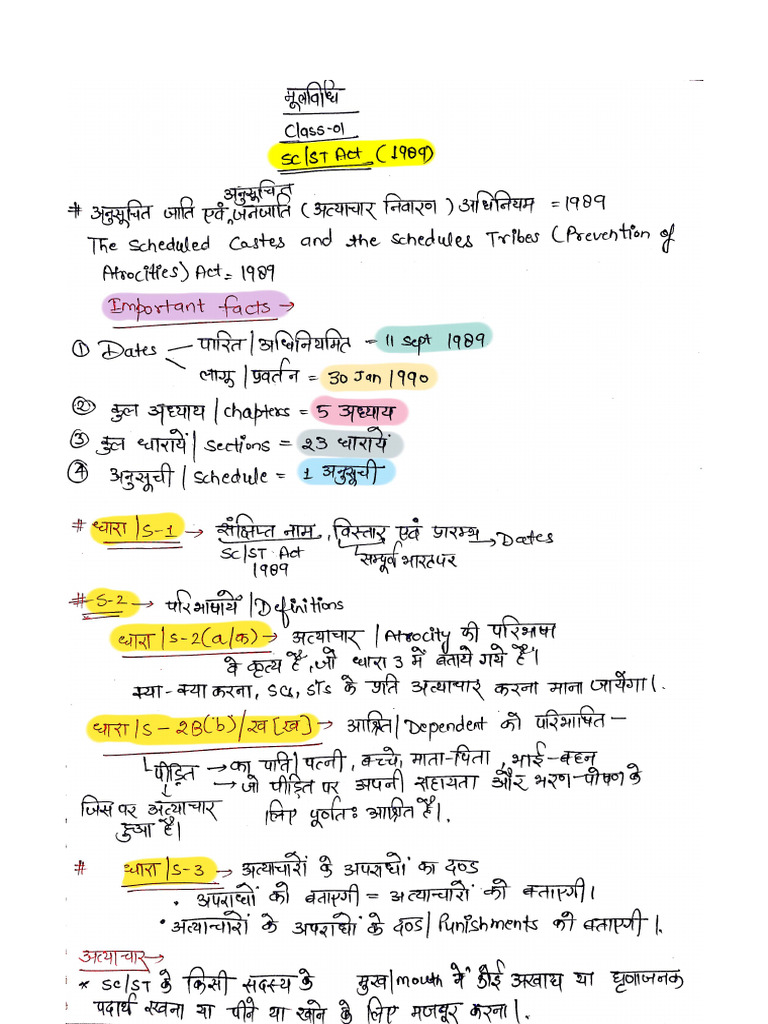 मूलविधि
Class-01
SC/ST Act (1989)
अनुसूचित
# अनुसूचित जाति एवं जनजाति (अत्याचार निवारण) अधिनियम = 1989
The Scheduled Castes and the Schedules Tribes (Prevention of
Atrocities) Act = 1989
Important facts →
① Dates — पारित/अधिनियमित = 11 Sept 1989
लागू/प्रवर्तन = 30 Jan 1990
② कुल अध्याय/chapters = 5 अध्याय
③ कुल धारायें/sections = 23 धारायें
④ अनुसूची/schedule = 1 अनुसूची
# धारा/S-1 → संक्षिप्त नाम, विस्तार एवं प्रारम्भ → Dates
SC/ST Act सम्पूर्ण भारत पर
1989
# S-2 → परिभाषायें/Definitions
धारा/S-2(a/क) → अत्याचार/Atrocity की परिभाषा
वे कृत्य हैं, जो धारा 3 में बताये गये हैं।
क्या-क्या करना, SCs, STs के प्रति अत्याचार करना माना जायेगा।
धारा/S-2B(b)/ख[ख] → आश्रित/Dependent को परिभाषित -
पीड़ित → का पति/पत्नी, बच्चे, माता-पिता, भाई-बहन
→ जो पीड़ित पर अपनी सहायता और भरण-पोषण के
जिस पर अत्याचार लिए पूर्णतः आश्रित है।
हुआ है।
# धारा/S-3 → अत्याचारों के अपराधों का दण्ड
• अपराधों को बताएगी = अत्याचारों को बताएगी।
• अत्याचारों के अपराधों के दण्ड/Punishments को बताएगी।
अत्याचार →
* SC/ST के किसी सदस्य के मुख/mouth में कोई अखाद्य या घृणाजनक
पदार्थ रखना या पीने या खाने के लिए मजबूर करना।